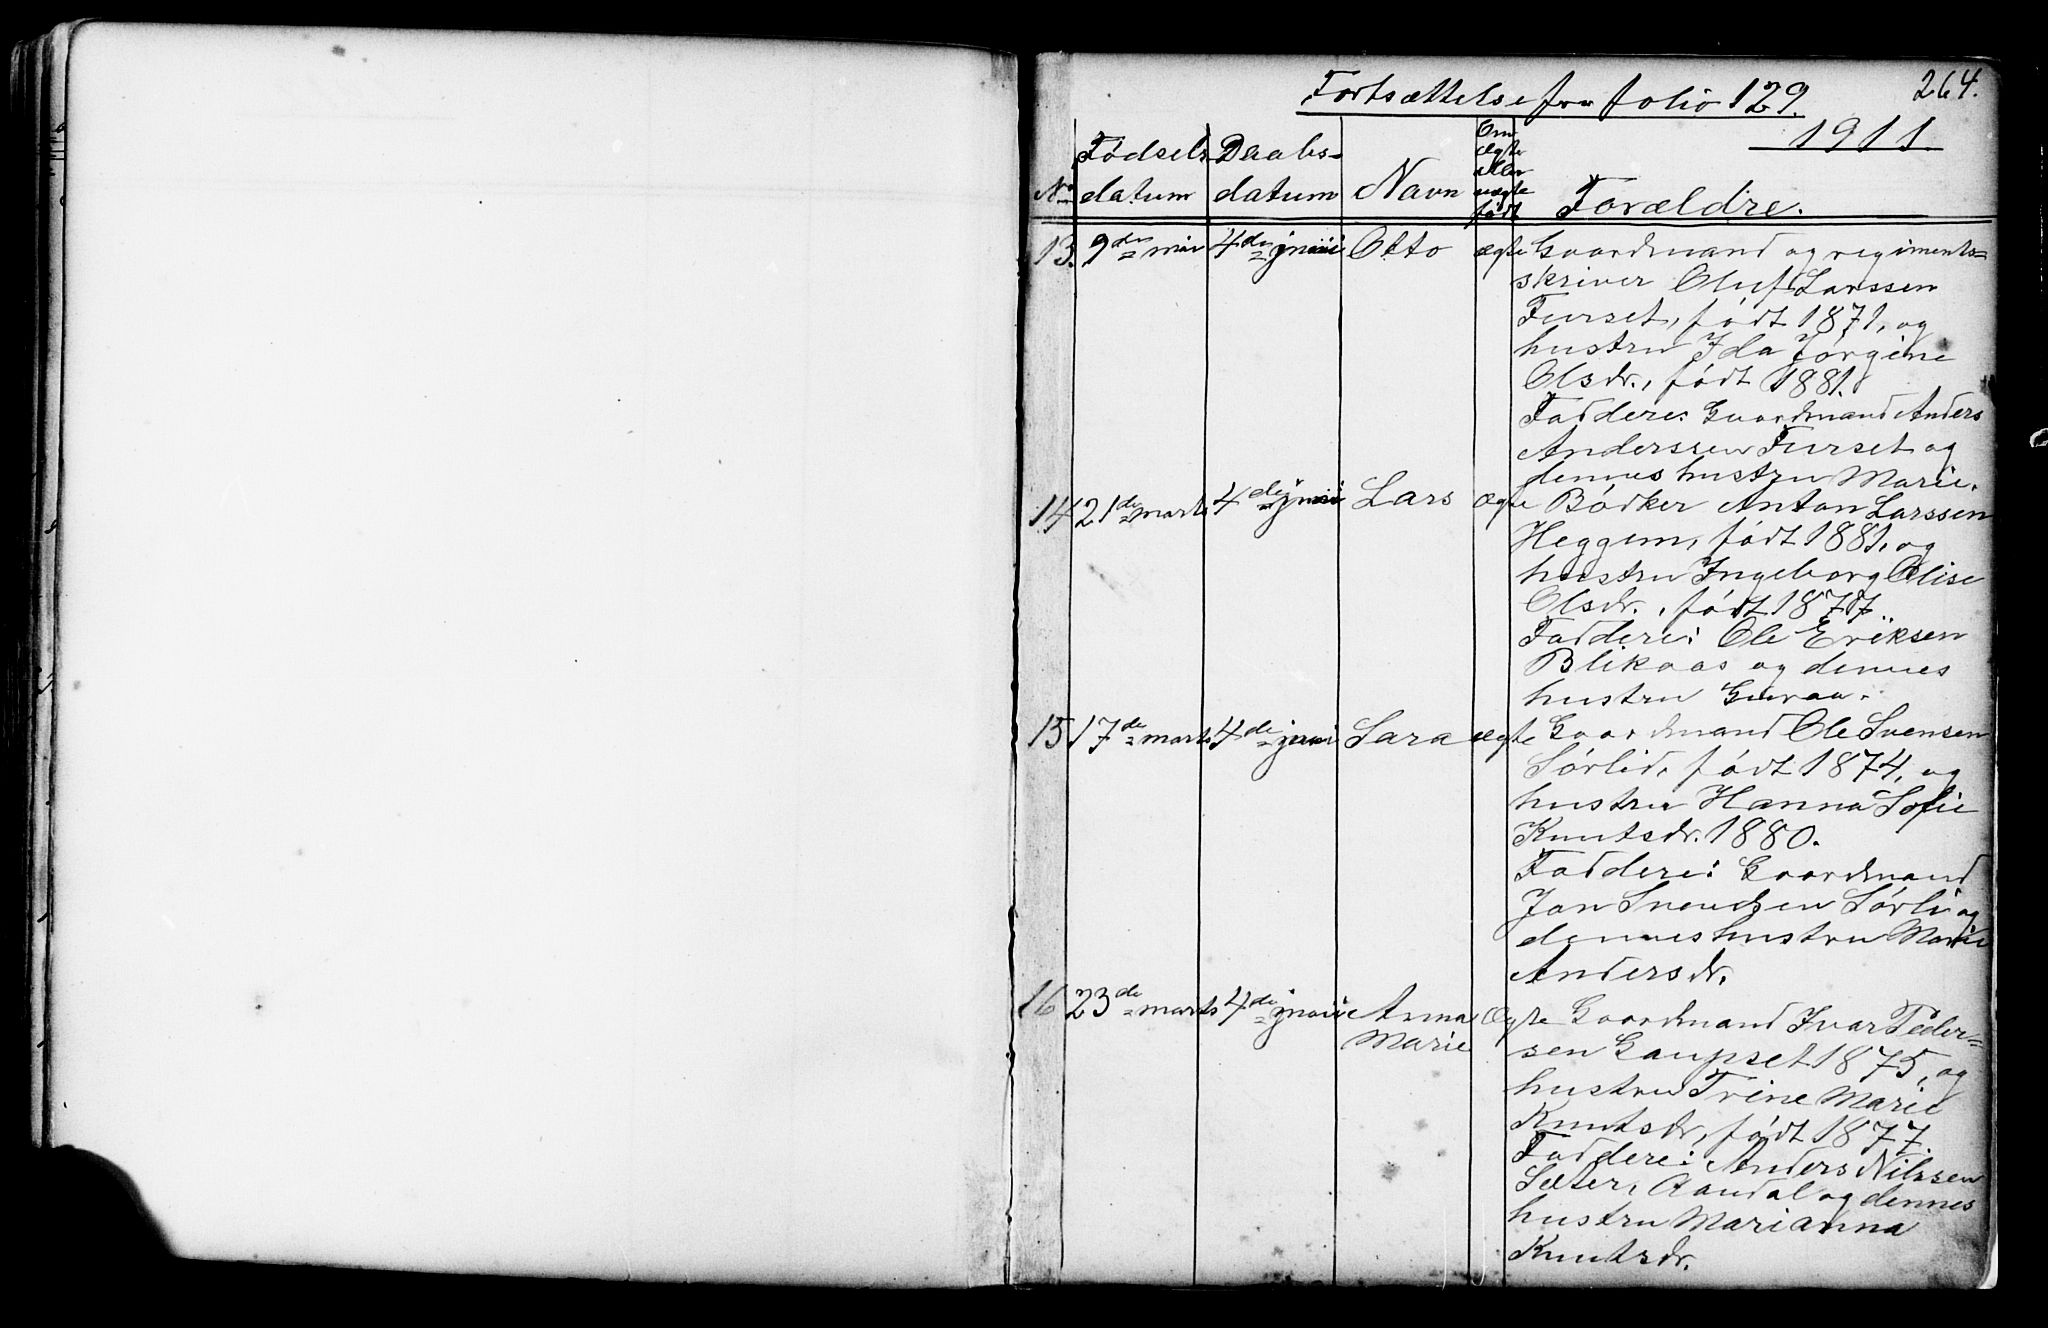 264.
Fortsættelse fra folio 129.
1911.
No
Fødsels-
datum
Daabs-
datum
Navn
Om
ægte
eller
uægte
født
Forældre.
13. 9de mai 4de juni Otto ægte Gaardmand og regiments=
skriver Oluf Larssen
Furset, født 1871, og
hustru Ida Jørgine
Olsdr., født 1881.
Faddere: Gaardmand Anders
Anderssen Furset og
dennes hustru Marie.
14 21de marts 4de juni Lars ægte Bødker Anton Larssen
Heggem, født 1881, og
hustru Ingeborg Elise
Olsdr., født 1877.
Faddere: Ole Eriksen
Blikaas og dennes
hustru Guraa.
15 17de marts 4de juni Sara ægte Gaardmand Ole Svensen
Sørlid, født 1874, og
hustru Hanna Sofie
Knutsdr. 1880.
Faddere: Gaardmand
Jon Svendsen Sørli og
dennes hustru Marie
Andersdr.
16 23de marts 4de juni Anna ægte Gaardmand Ivar Peder=
Marie sen Gaupset 1875, og
hustru Trine Marie
Knutsdr, født 1877.
Faddere: Anders Nilssen
Sæter, Aandal og dennes
hustru Marianna
Knutsdr.